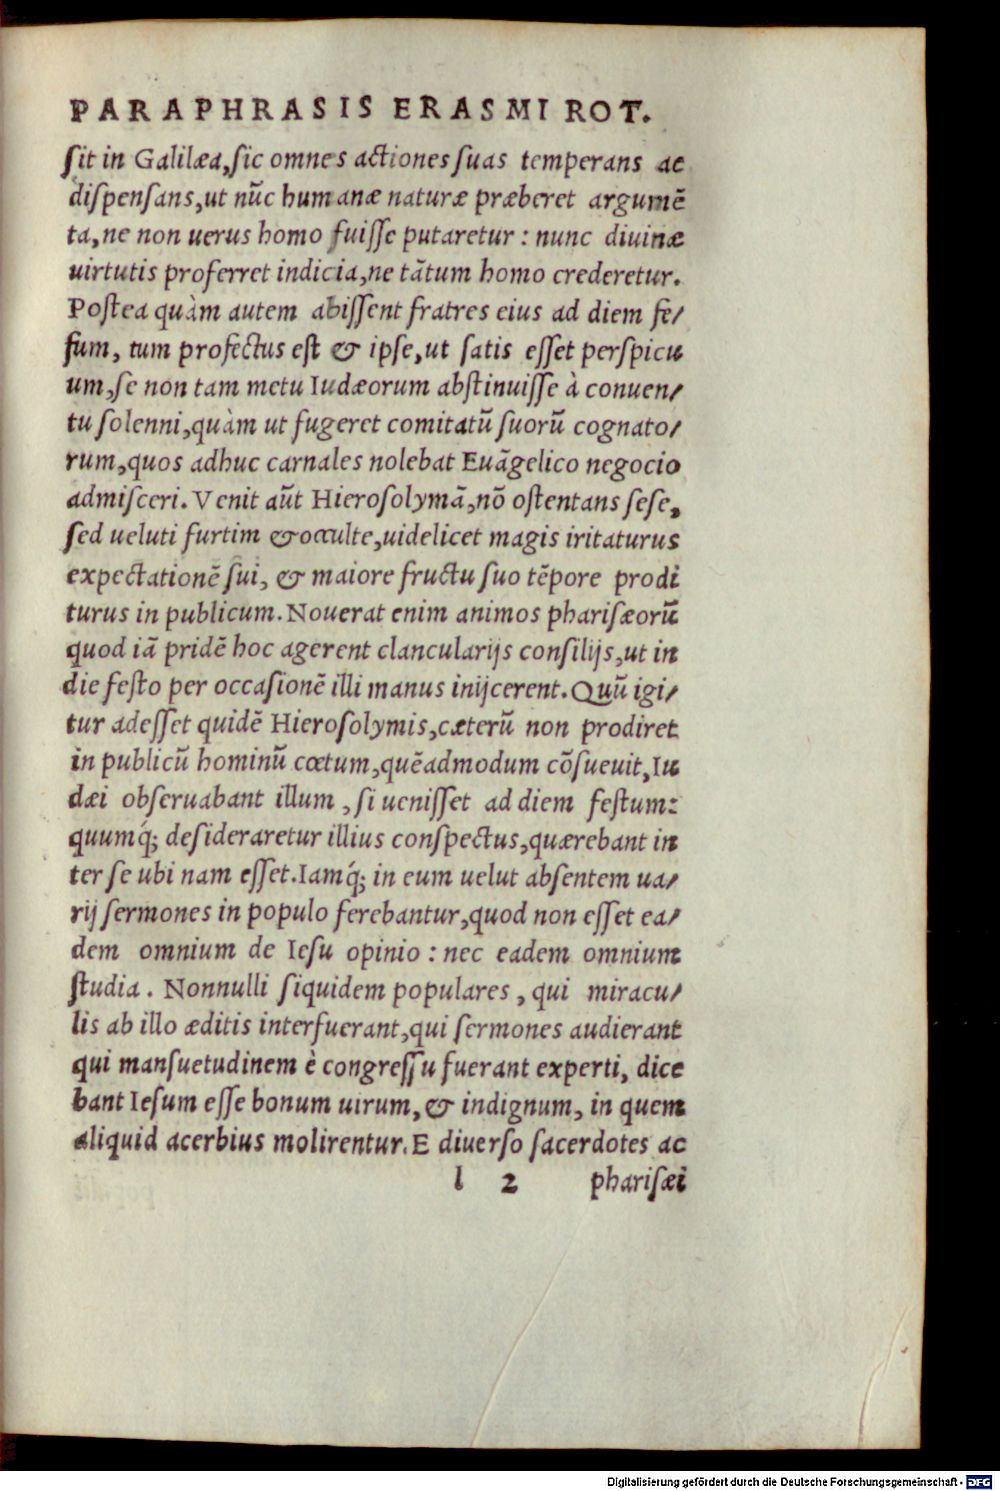 PARAPHRASIS ERASMI ROT.
ſit in Galilæa,ſic omnes actiones ſuas temperans ac
diſpenſans,ut nūc humanæ naturæ præberet argumē
ta,ne non uerus homo fuiſſe putaretur : nunc diuinæ
uirtutis proferret indicia,ne tātum homo crederetur.
Poſtea quàm autem abiſſent fratres eius ad diem fe/
ſtum, tum profectus eſt & ipſe,ut ſatis eſſet perſpicu
um,ſe non tam metu Iudæorum abſtinuiſſe à conuen/
tu ſolenni,quàm ut fugeret comitatū ſuorū cognato/
rum,quos adhuc carnales nolebat Euāgelico negocio
admiſceri. Venit aūt Hieroſolymā,nō oſtentans ſeſe,
ſed ueluti furtim & occulte,uidelicet magis iritaturus
expectationē ſui, & maiore fructu ſuo tēpore prodi
turus in publicum. Nouerat enim animos phariſæorū
quod iā pridē hoc agerent clancularijs conſilijs,ut in
die feſto per occaſionē illi manus inijcerent. Quū igi/
tur adeſſet quidē Hieroſolymis,cæterū non prodiret
in publicū hominū cœtum,quēadmodum cōſueuit,Iu
dæi obſeruabant illum , ſi ueniſſet ad diem feſtum:
quumq́; deſideraretur illius conſpectus,quærebant in
ter ſe ubi nam eſſet. Iamq́; in eum uelut abſentem ua/
rij ſermones in populo ferebantur,quod non eſſet ea/
dem omnium de Ieſu opinio : nec eadem omnium
ſtudia . Nonnulli ſiquidem populares , qui miracu/
lis ab illo æditis interfuerant,qui ſermones audierant
qui manſuetudinem è congreſſu fuerant experti, dice
bant Ieſum eſſe bonum uirum, & indignum, in quem
aliquid acerbius molirentur. E diuerſo ſacerdotes ac
l 2 phariſæi
Digitalisierung gefördert durch die Deutsche Forschungsgemeinschaft - DFG